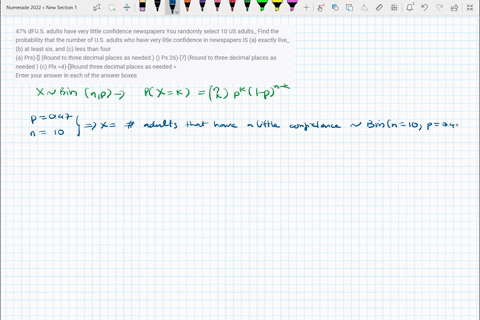 Numerade 2022 > New Section 1
47% dFU.S. adults have very little confidence newspapers You randomly select 10 US adults_ Find the
probability that the number of U.S. adults who have very little confidence in newspapers IS (a) exactly live_
(b) at least six, and (c) less than four
(a) Prs)-[] (Round to three decimal places as needed ) () Px 26)-[7] (Round to three decimal places as
needed ) (c) P(x <4)-[]Round three decimal places as needed =
Enter your answer in each of the answer boxes
X ~ Bin (n,p) → P(X=k) = (n k) p^k (1-p)^n-k
p=0.47
n = 10 } => X= # adults that have a little confidence ~ Bin(n=10, p=0.4